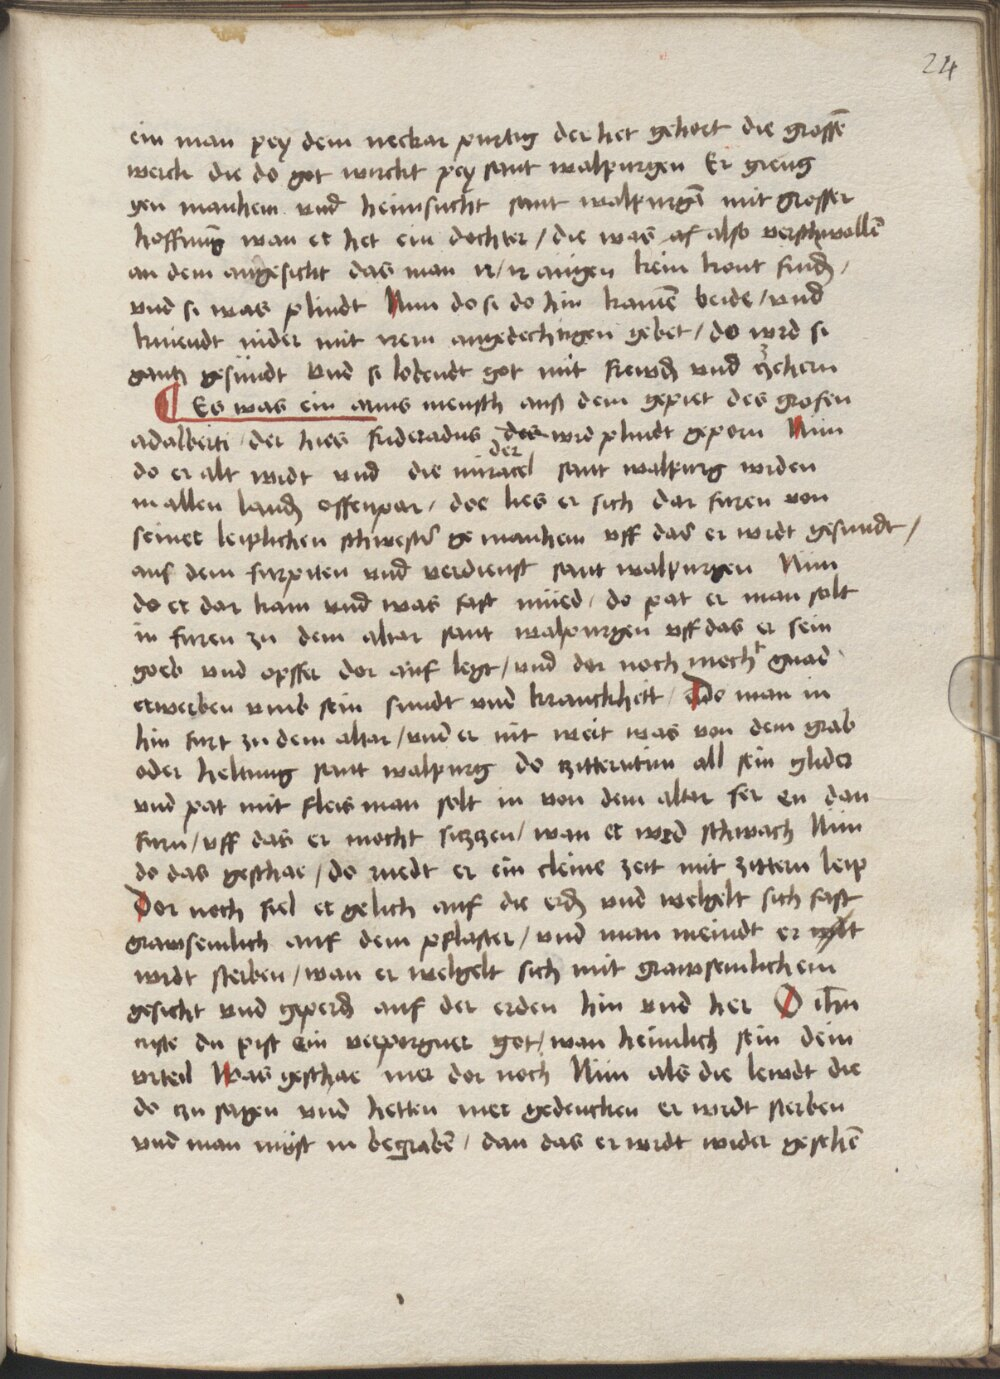 24
ein man pey dem neckar purtig der het gehort die grossē
werck die do got wircht pey sant walpurgen Er gieng
gen manhem vnd heimsucht sant walpurgē mit grosser
hoffnūg wan er het ein dochter / die was af also verschwollē
an dem angesicht das man ir / ir augen kein kont find /
vnd si was plindt Nun do si do hin kamē beide / vnd
knuendt nider mit irem angedechtigen gebet / do wrd si
gantz gesundt vnd si lobendt got mit frewd vnd zehern
¶ Es was ein arms mensch auß dem gepiet des grofen
adalberti / der hies frideradus des wrd plindt geporn Nun
do er alt wirdt vnd die miracel der sant walpurg wrden
in allen land offenpar / doe lies er sich dar furen von
seiner leiplichen schwester ge manhem vff das er wrdt gesundt /
auf dem furpiten vnd verdienst sant walpurgen Nun
do er dar kam vnd was fast mued / do pat er man solt
in furen zu dem altar sant walpurgen vff das er sein
goeb vnd opffer dor auf legt / vnd dor noch mecht gnad
erwerben vmb sein sundt vnd kranckheit / do man in
hin furt zu dem altar / vnd er nit weit was von dem grab
oder heltung sant walpurg do zitternten all sein glider
vnd pat mit fleis man solt in von dem altar fer en dan
furn / vff das er mocht sizzen / wan er wrd schwach Nun
do das geschae / do ruedt er ein cleine zeit mit zittern leip
Dor noch fiel er gelich auf die erd vnd welgelt sich fast
grawsemlich auf dem pflaster / vnd man meindt er wolt
wrdt sterben / wan er welgelt sich mit grawsemlichem
gesicht vnd geperd auf der erden hin vnd her O ihū
criste du pist ein verporgner got / wan heimlich sein dein
vrteil Was geschae mer dor noch Nun als die lewdt die
do zu sagen vnd hetten mer gedencken er wrdt sterben
vnd man must in begrabē / dan das er wrdt wider gesehē